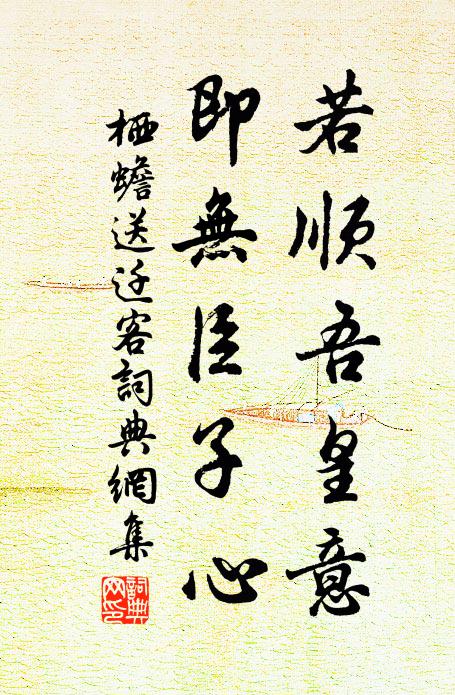 若順吾皇意
即無臣子心
栖蟾送迁客詞典網集
詞典網印